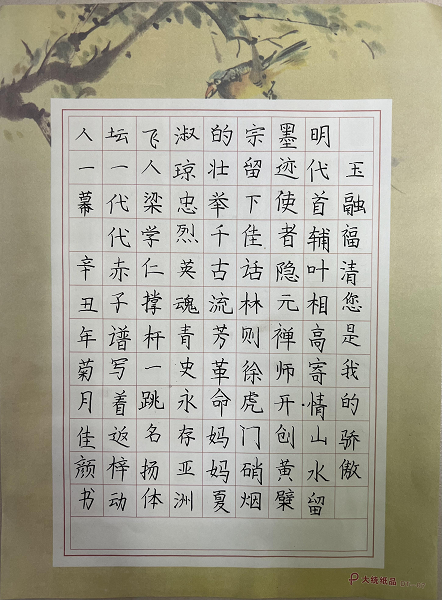 玉融福清您是我的骄傲
明代首辅叶相高寄情山水留
墨迹使者隐元禅师开创黄檗
宗留下佳话林则徐虎门硝烟
的壮举千古流芳革命妈妈夏
淑琼忠烈英魂青史永存亚洲
飞人梁学仁撑杆一跳名扬体
坛一代代赤子谱写着返梓动
人一幕 辛丑年菊月佳颜书
大统纸品